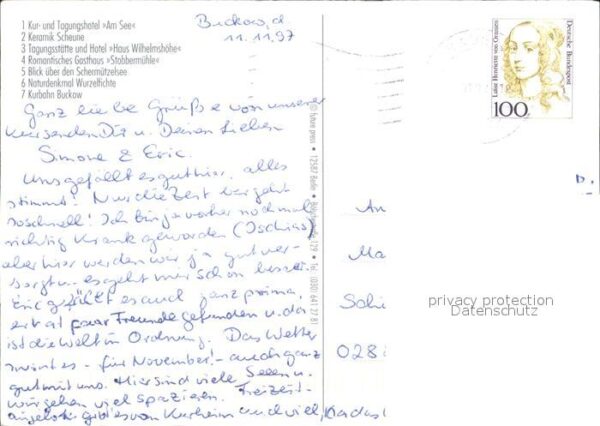 1 Kur- und Tagungshotel »Am See«
2 Keramik Scheune
3 Tagungsstätte und Hotel »Haus Wilhelmshöhe«
4 Romantisches Gasthaus »Stobbermühle«
5 Blick über den Schermützelsee
6 Naturdenkmal Wurzelfichte
7 Kurbahn Buckow
Buckow, d
11.11.97
Ganz liebe Grüße von unserer
Kur senden Dir u. Deinen Lieben
Simone & Eric.
Uns gefällt es gut hier, alles
stimmt! Nur die Zeit vergeht
so schnell! Ich bin ja vorher nochmal
richtig krank geworden (Ischias)
aber hier werden wir ja gut ver-
sorgt u. es geht mir schon besser.
Eric gefällt es auch ganz prima,
er hat paar Freunde gefunden u. da
ist die Welt in Ordnung. Das Wetter
meint es - für November! - auch ganz
gut mit uns. Hier sind viele Seeen u.
wir gehen viel spazieren. Freizeit-
angebote gibt es von Kurheim auch viel,
© future press • 12587 Berlin • 129 • Tel. (030) 641 27 81
Luise Henriette von Oranien
Deutsche Bundespost
100
D.
An
Ma
Schi
028
privacy protection
Datenschutz